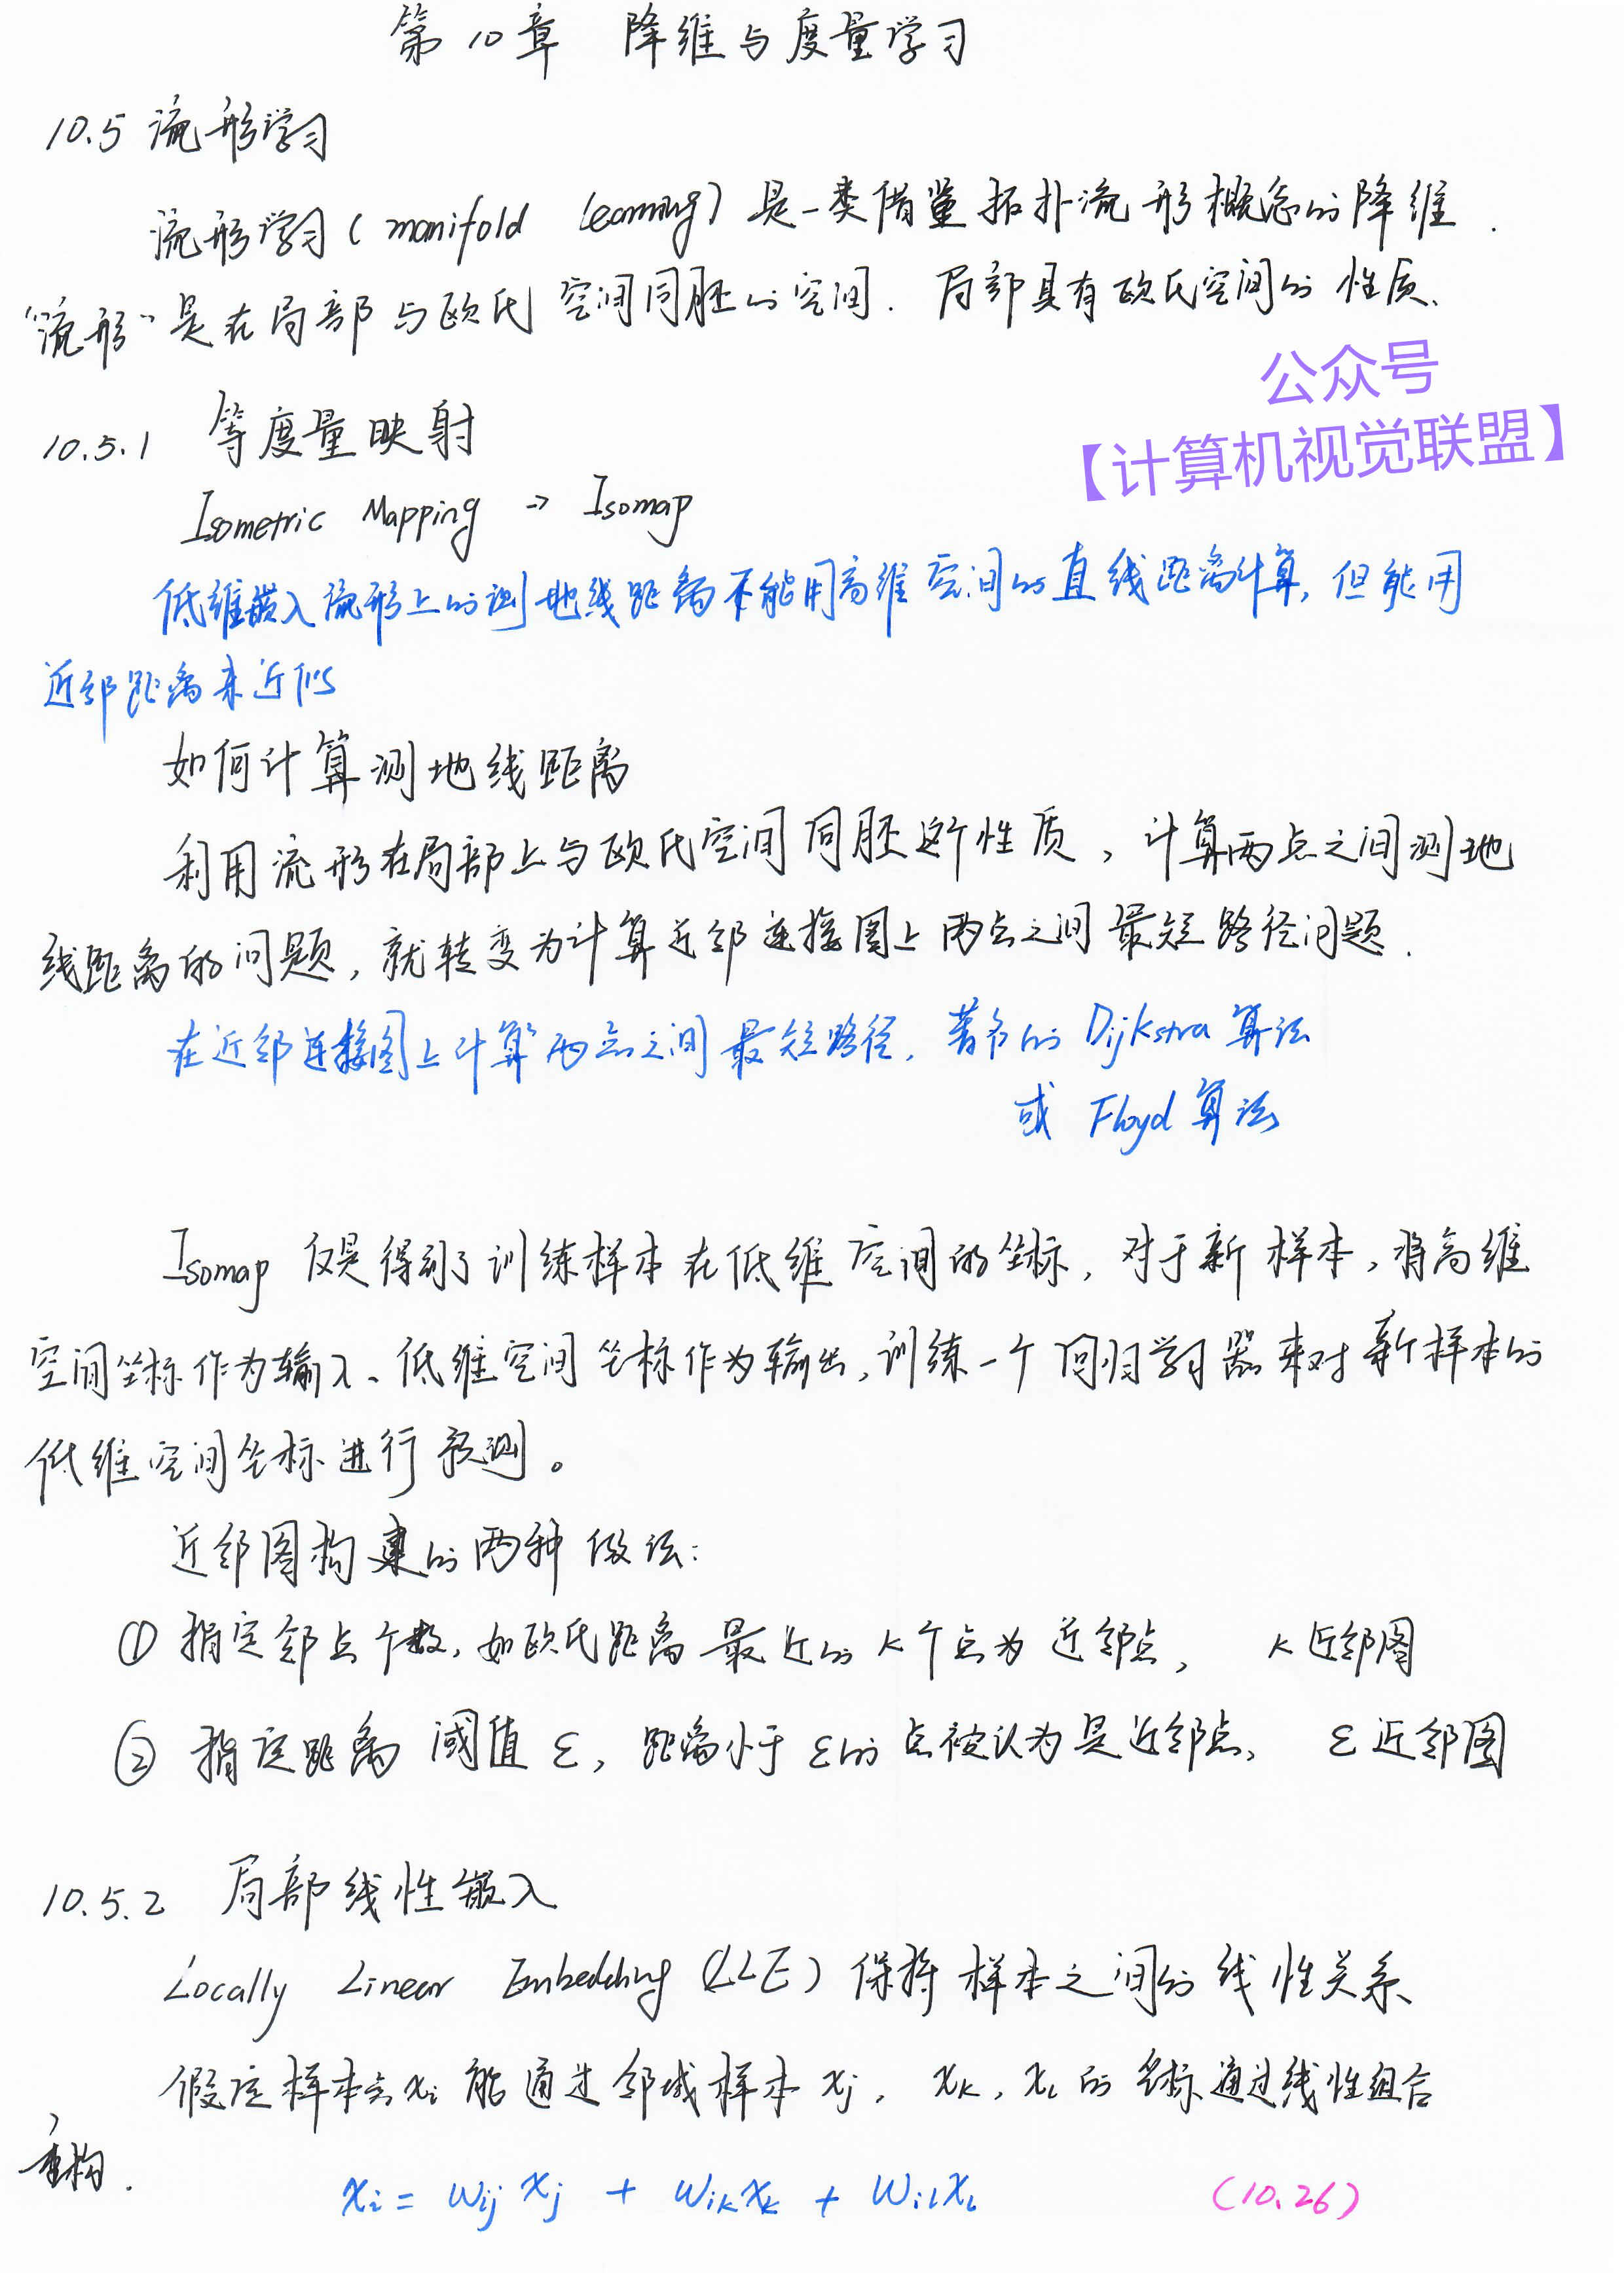 第10章 降维与度量学习
10.5 流形学习
流形学习(manifold learning)是一类借鉴拓扑流形概念的降维.
“流形”是在局部与欧氏空间同胚的空间.局部具有欧氏空间的性质.
公众号
【计算机视觉联盟】
10.5.1 等度量映射
Isometric Mapping → Isomap
低维嵌入流形上的测地线距离不能用高维空间的直线距离计算,但能用
近邻距离来近似
如何计算测地线距离
利用流形在局部上与欧氏空间同胚这个性质,计算两点之间测地
线距离的问题,就转变为计算近邻连接图上两点之间最短路径问题.
在近邻连接图上计算两点之间最短路径,著名的Dijkstra算法
或 Floyd算法
Isomap 仅是得到了训练样本在低维空间的坐标,对于新样本,将高维
空间坐标作为输入、低维空间坐标作为输出,训练一个回归学习器来对新样本的
低维空间坐标进行预测。
近邻图构建的两种做法:
① 指定邻点个数,如欧氏距离最近的k个点为近邻点, k近邻图
② 指定距离阈值ε,距离小于ε的点被认为是近邻点, ε近邻图
10.5.2 局部线性嵌入
Locally Linear Embedding (LLE) 保持样本之间的线性关系
假定样本点xi能通过邻域样本xj, xk, xl的坐标通过线性组合
重构.
xi = wij xj + wik xk + wil xl (10.26)